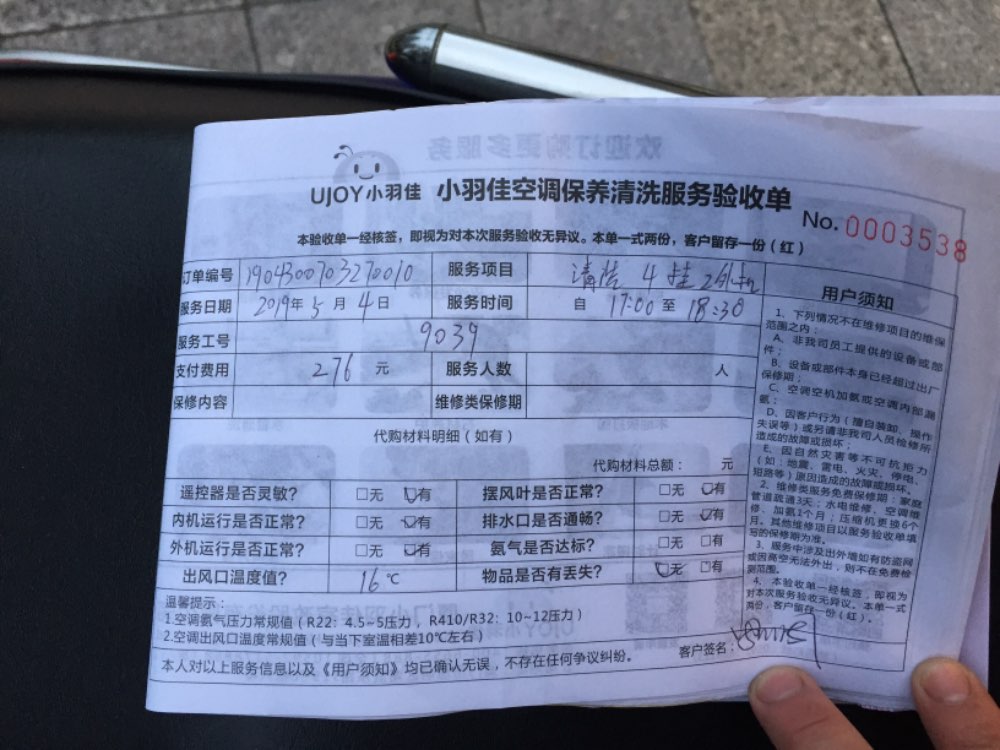 UJOY小羽佳 小羽佳空调保养清洗服务验收单
No. 0003538
本验收单一经核签，即视为对本次服务验收无异议。本单一式两份，客户留存一份（红）
订单编号 1904300703270010 服务项目 清洗4挂2外机
服务日期 2019年5月4日 服务时间 自 17:00 至 18:30
服务工号 9039
支付费用 276 元 服务人数 人
保修内容 维修类保修期
代购材料明细（如有）
代购材料总额： 元
遥控器是否灵敏？ □无 □有 摆风叶是否正常？ □无 □有
内机运行是否正常？ □无 □有 排水口是否通畅？ □无 □有
外机运行是否正常？ □无 □有 氨气是否达标？ □无 □有
出风口温度值？ 16℃ 物品是否有丢失？ □无 □有
温馨提示：
1.空调氨气压力常规值（R22：4.5~5压力，R410/R32：10~12压力）
2.空调出风口温度常规值（与当下室温相差10℃左右）
本人对以上服务信息以及《用户须知》均已确认无误，不存在任何争议纠纷。
客户签名：
用户须知
1、下列情况不在维修项目的维保
范围之内：
A、非我司员工提供的设备或部
件；
B、设备或部件本身已经超过出厂
保修期；
C、空调空机加氨或空调内部漏
氨；
D、因客户行为（擅自装卸、操作
失误等）或另请非我司人员检修所
造成的故障或损坏；
E、因自然灾害等不可抗拒力
（如：地震、雷电、火灾、停电、
短路等）原因造成的故障或损坏。
2、维修类服务免费保修期：家庭
管道疏通3天；水电维修、空调维
修、加氨1个月；压缩机更换6个
月。其他维修项目以服务验收单填
写的保修期为准。
3、服务中涉及出外墙如有防盗网
或因高空无法外出，则不在免费检
测范围。
4、本验收单一经核签，即视为
对本次服务验收无异议。本单一式
两份，客户留存一份（红）。